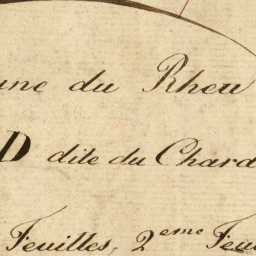 une du Rheu
D dite du Chard
Feuilles, 2eme Feu